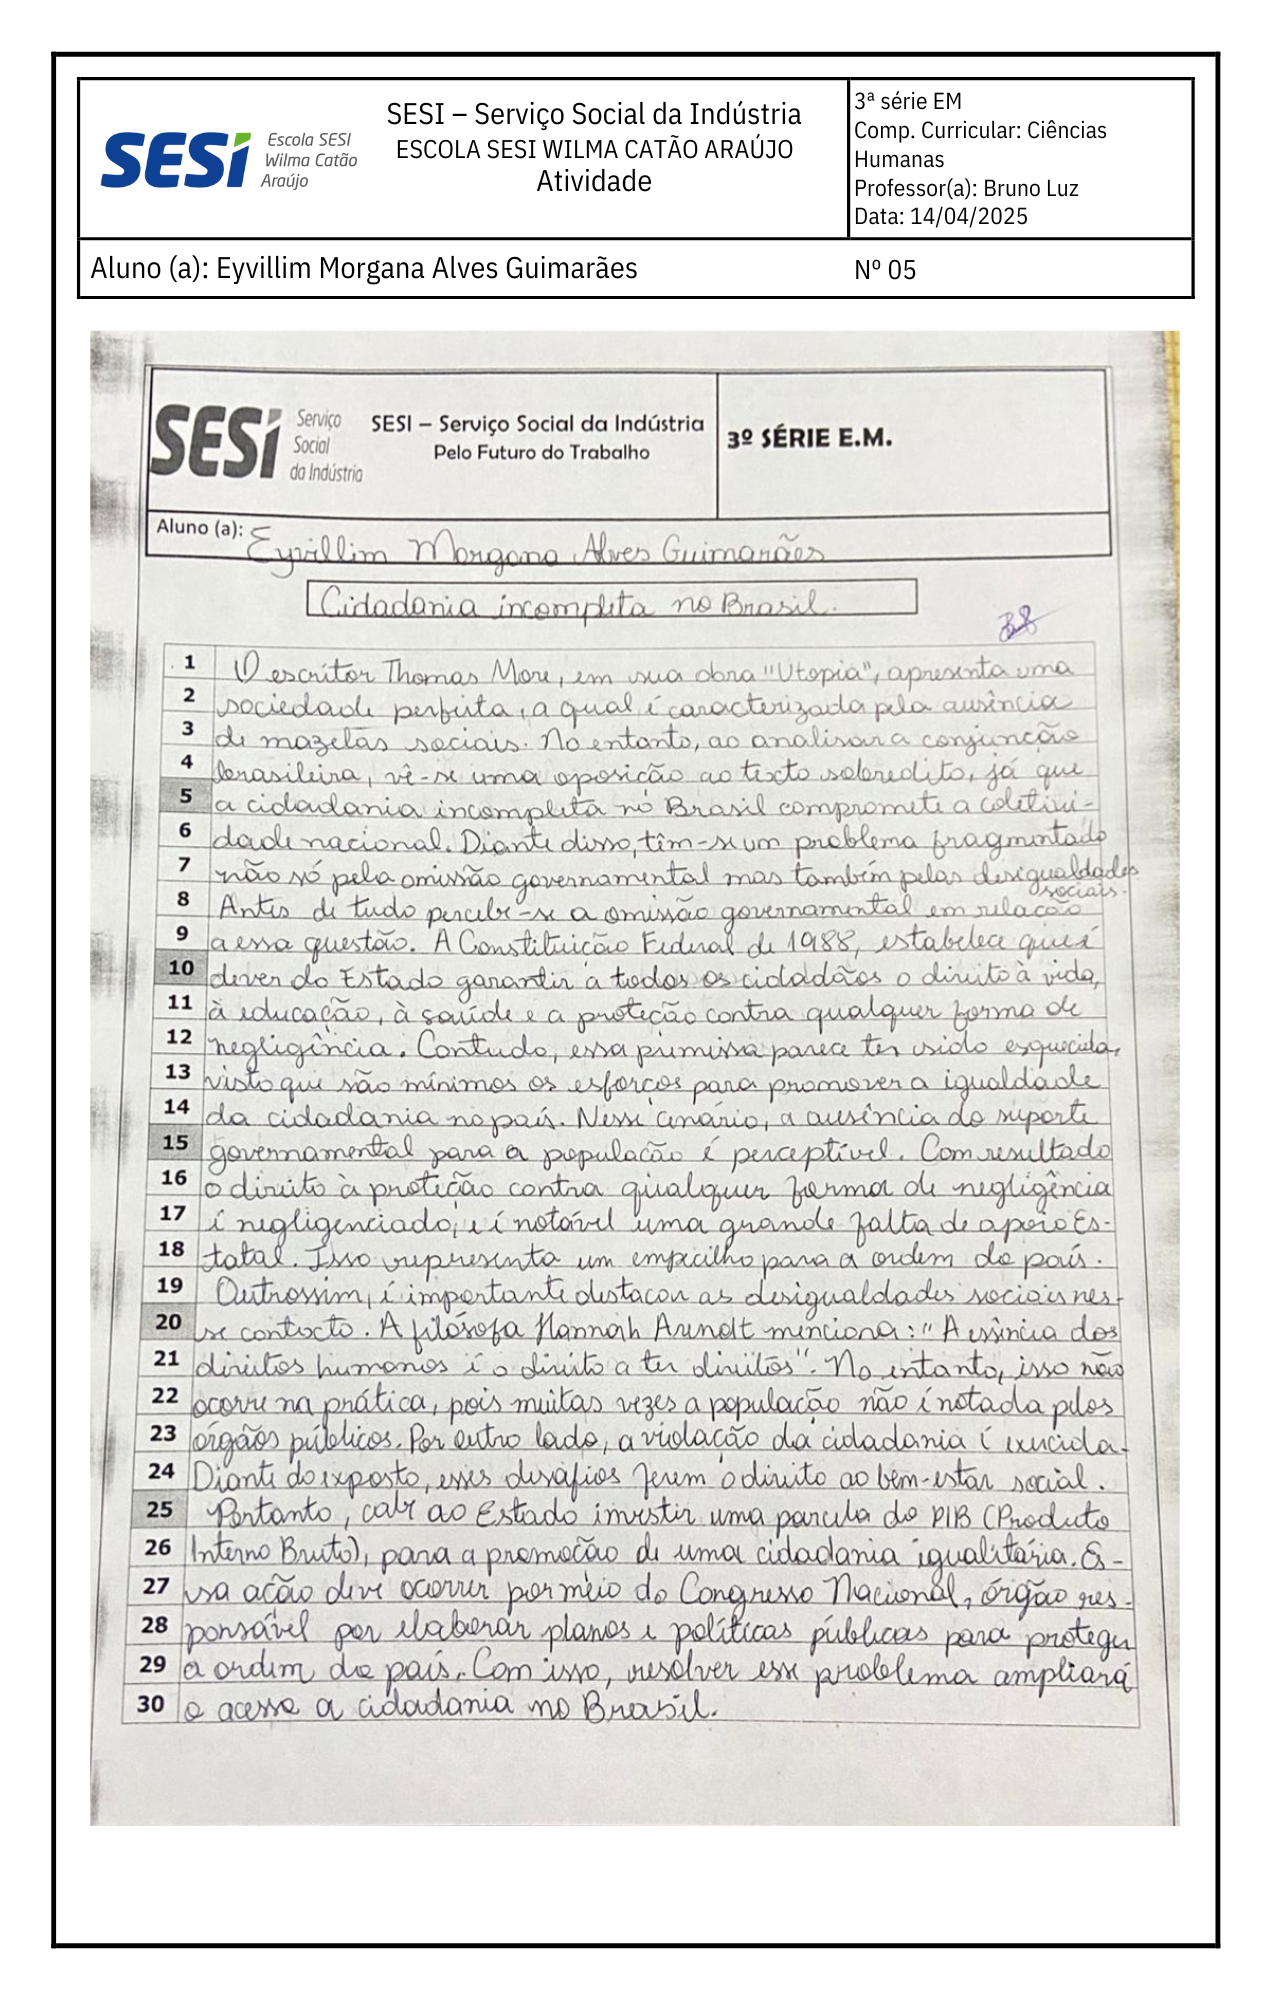 SESI – Serviço Social da Indústria
ESCOLA SESI WILMA CATÃO ARAÚJO
Atividade
SESI
Escola SESI
Wilma Catão
Araújo
3ª série EM
Comp. Curricular: Ciências
Humanas
Professor(a): Bruno Luz
Data: 14/04/2025
Aluno (a): Eyvillim Morgana Alves Guimarães
Nº 05
SESI
Serviço
Social
da Indústria
SESI – Serviço Social da Indústria
Pelo Futuro do Trabalho
3º SÉRIE E.M.
Aluno (a): Eyvillim Morgana Alves Guimarães
Cidadania incompleta no Brasil.
1 O escritor Thomas More, em sua obra "Utopia", apresenta uma
2 sociedade perfeita, a qual é caracterizada pela ausência
3 de mazelas sociais. No entanto, ao analisar a conjunção
4 brasileira, vê-se uma oposição ao texto sobredito, já que
5 a cidadania incompleta no Brasil compromete a coletivi-
6 dade nacional. Diante disso, têm-se um problema fragmentado
7 não só pela omissão governamental mas também pelas desigualdades
sociais.
8 Antes de tudo percebe-se a omissão governamental em relação
9 a essa questão. A Constituição Federal de 1988, estabelece que é
10 dever do Estado garantir a todos os cidadãos o direito à vida,
11 à educação, à saúde e a proteção contra qualquer forma de
12 negligência. Contudo, essa premissa parece ter sido esquecida,
13 visto que são mínimos os esforços para promover a igualdade
14 da cidadania no país. Nesse cenário, a ausência do suporte
15 governamental para a população é perceptível. Com resultado
16 o direito à proteção contra qualquer forma de negligência
17 é negligenciado, e é notável uma grande falta de apoio Es-
18 tatal. Isso representa um empecilho para a ordem do país.
19 Outrossim, é importante destacar as desigualdades sociais nes-
20 se contexto. A filósofa Hannah Arendt menciona: "A essência dos
21 direitos humanos é o direito a ter direitos". No entanto, isso não
22 ocorre na prática, pois muitas vezes a população não é notada pelos
23 órgãos públicos. Por outro lado, a violação da cidadania é exercida.
24 Diante do exposto, esses desafios ferem o direito ao bem-estar social.
25 Portanto, cabe ao Estado investir uma parcela do PIB (Produto
26 Interno Bruto), para a promoção de uma cidadania igualitária. Es-
27 sa ação deve ocorrer por meio do Congresso Nacional, órgão res-
28 ponsável por elaborar planos e políticas públicas para proteger
29 a ordem do país. Com isso, resolver esse problema ampliará
30 o acesso a cidadania no Brasil.